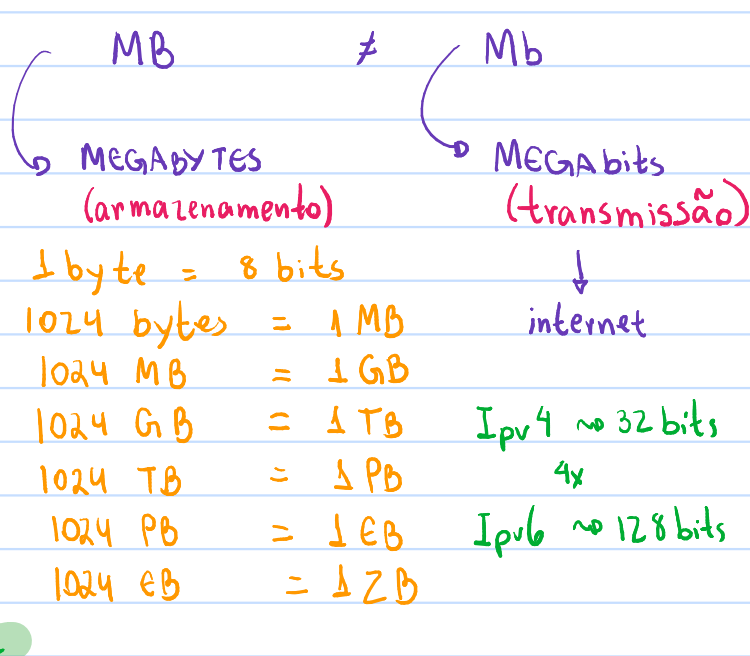 MB ≠ Mb
MEGABYTES
(armazenamento)
MEGAbits
(transmissão)
internet
1 byte = 8 bits
1024 bytes = 1 MB
1024 MB = 1 GB
1024 GB = 1 TB
1024 TB = 1 PB
1024 PB = 1 EB
1024 EB = 1 ZB
Ipv4 ~> 32 bits
4x
Ipv6 ~> 128 bits